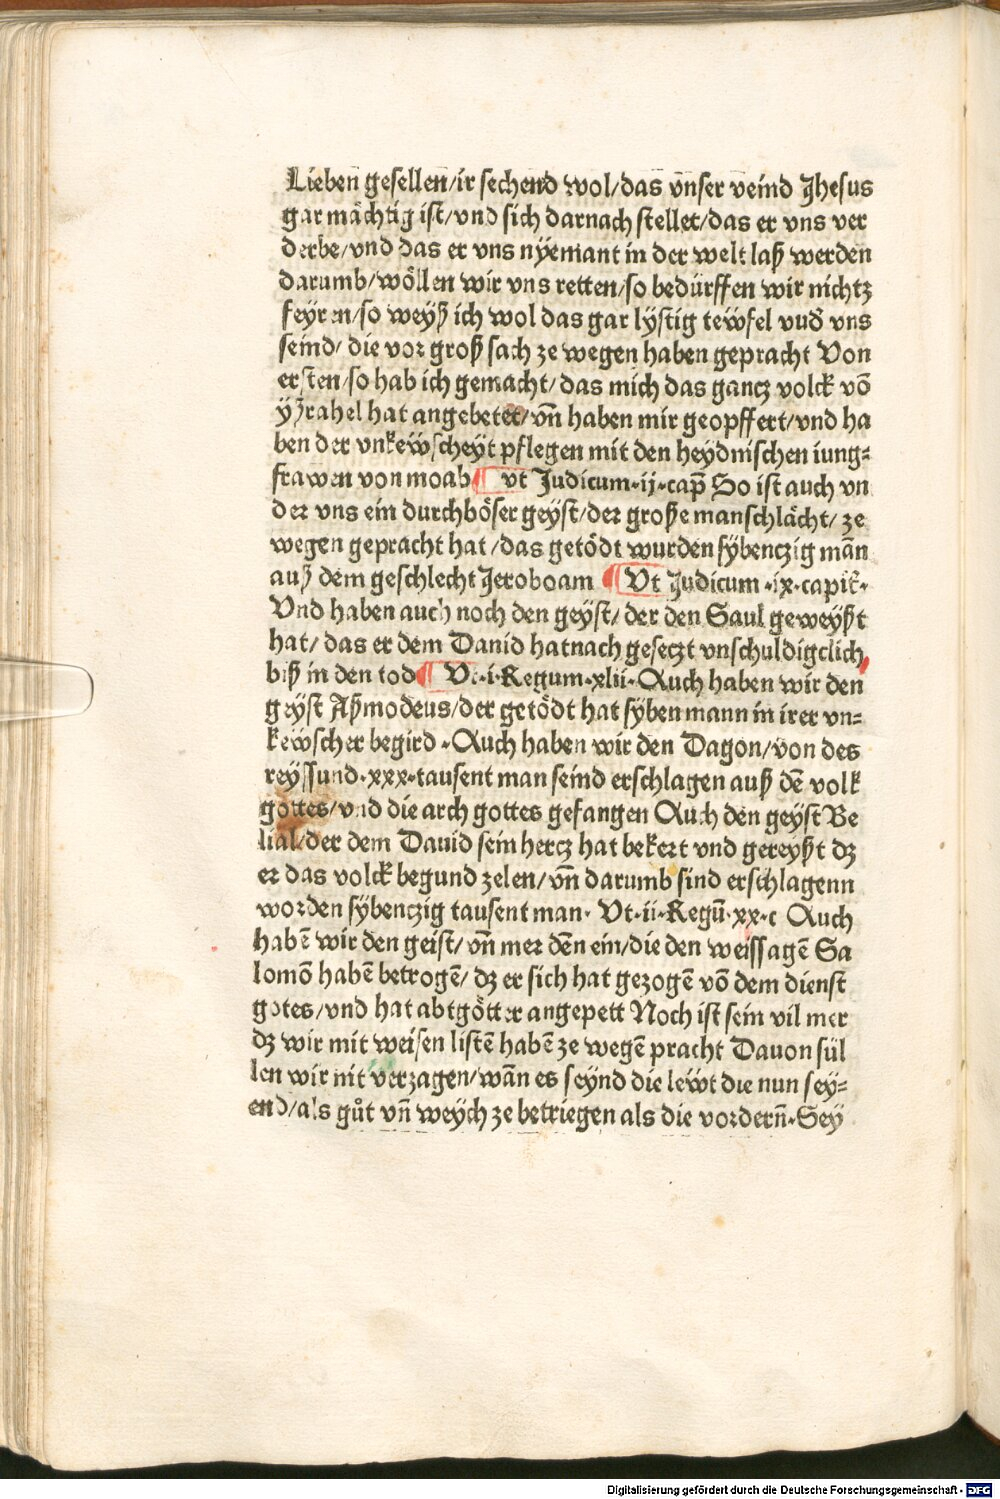 Lieben gesellen/ir sechend wol/das vnser veind Jhesus
gar mächtig ist/vnd sich darnach stellet/das er vns ver
derbe/vnd das er vns nyemant in der welt laß werden
darumb/wöllen wir vns retten/so bedürffen wir nichtz
feyren/so weyß ich wol das gar lystig tewfel vnd̕ vns
seind/ die vor groß sach ze wegen haben gepracht Von
ersten/so hab ich gemacht/das mich das gancz volck vō
yßrahel hat angebetet/vn̄ haben mir geopffert/vnd ha
ben der vnkewscheyt pflegen mit den heydnischen iung⸗
frawen von moab ¶ vt Judicum·ij·cap̄ So ist auch vn
der vns ein durchböser geyst/der große manschlächt/ ze
wegen gepracht hat/das getödt wurden sybenczig mān
auß dem geschlecht Jeroboam ¶ Vt Judicum·ix·capit̄·
Vnd haben auch noch den geyst/ der den Saul geweyßt
hat/ das er dem Danid hat nach geseczt vnschuldigclich
biß in den tod ¶ Vt·i·Regum·xlii·Auch haben wir den
geyst Aßmodeus/der getödt hat syben mann in irer vn⸗
kewscher begird·Auch haben wir den Dagon/von des
reyssund·xxx·tausent man seind erschlagen auß dē volk
gottes/vnd die arch gottes gefangen Auch den geyst Be
lial/der dem Dauid sein hercz hat bekert vnd gereyßt dz
er das volck begund zelen/vn̄ darumb sind erschlagenn
worden sybenczig tausent man· Vt·ii·Regū·xx·c Auch
habē wir den geist/ vn̄ mer dēn ein/die den weissagē Sa
lomō habē betrogē/ dz er sich hat gezogē vō dem dienst
gotes/vnd hat abtgötter angepett Noch ist sein vil mer
dz wir mit weisen listē habē ze wegē pracht Dauon sül
len wir nit verzagen/wān es seynd die lewt die nun sey⸗
end/als gůt vn̄ weych ze betriegen als die vordern̄·Sey
Digitalisierung gefördert durch die Deutsche Forschungsgemeinschaft - DFG